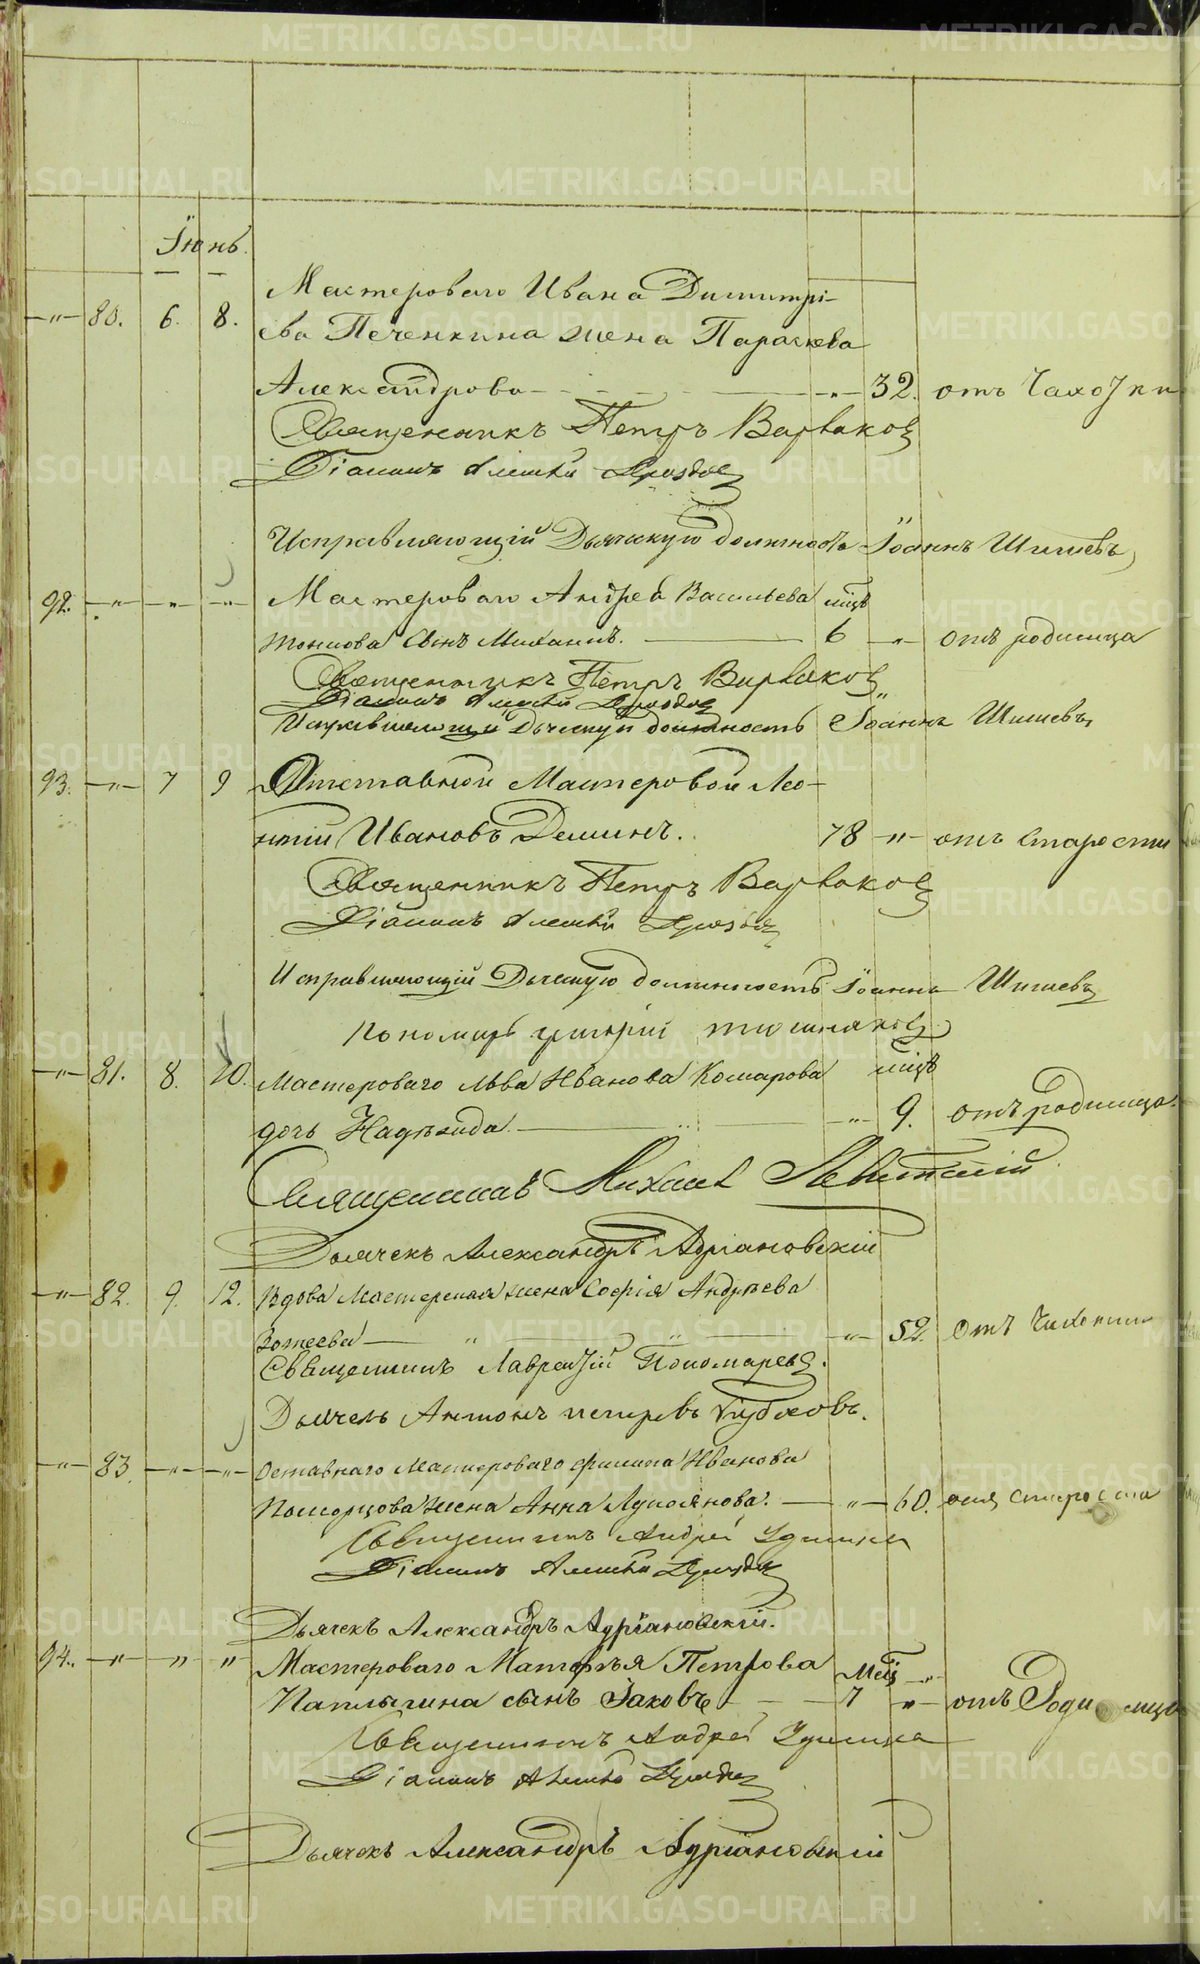 METRIKI.GASO-URAL.RU
Іюнь.
Мастероваго Ивана Димитрі-
—"— 80. 6. 8. ева Печенкина жена Параскева
Александрова — "— 32. отъ Чахотки
Священникъ Петръ Варваков
Діаконъ Алексѣй Дроздов
Исправляющій Дьяческую должность Іоаннъ Шишевъ
92. —"— —"— —"— Мастероваго Андрея Васильева мѣц
сынъ Михаилъ. — 6 —"— отъ родимца
Священникъ Петръ Варваков
Діаконъ Алексѣй Дроздов
Исправляющій Дьяческую должность Іоаннъ Шишевъ
93. —"— 7 9 Отставной Мастеровой Лео-
нтій Ивановъ Деминъ. 78 —"— отъ старости
Священникъ Петръ Варваков
Діаконъ Алексѣй Дроздов
Исправляющій Дьяческую должность Іоаннъ Шишевъ
Пономарь Григорій
—"— 81. 8. 10. Мастероваго Льва Иванова Комарова мѣц
дочь Надежда — —"— 9. отъ родимца.
Священникъ Михаил Левитскій
Дьячекъ Александръ Адріановскій
—"— 82. 9. 12. Вдова Мастерская жена Софія Андреева
— —"— 52. отъ Чахотки
Священникъ Лаврентій Пономарев.
Дьячекъ Антонъ Петровъ
—"— 83. —"— —"— Оставнаго Мастероваго Филипа Иванова
жена Анна Лукоянова. — —"— 60. отъ старости
Священникъ Андрей Удинцев
Діаконъ Алексѣй Дроздов
Дьячекъ Александръ Адріановскій.
94. —"— " " Мастероваго Матфѣя Петрова Мѣц —"—
сынъ Іаковъ — 7 " — отъ Родимца
Священникъ Андрей Удинцев
Діаконъ Алексѣй Дроздов
Дьячекъ Александръ Адріановскій